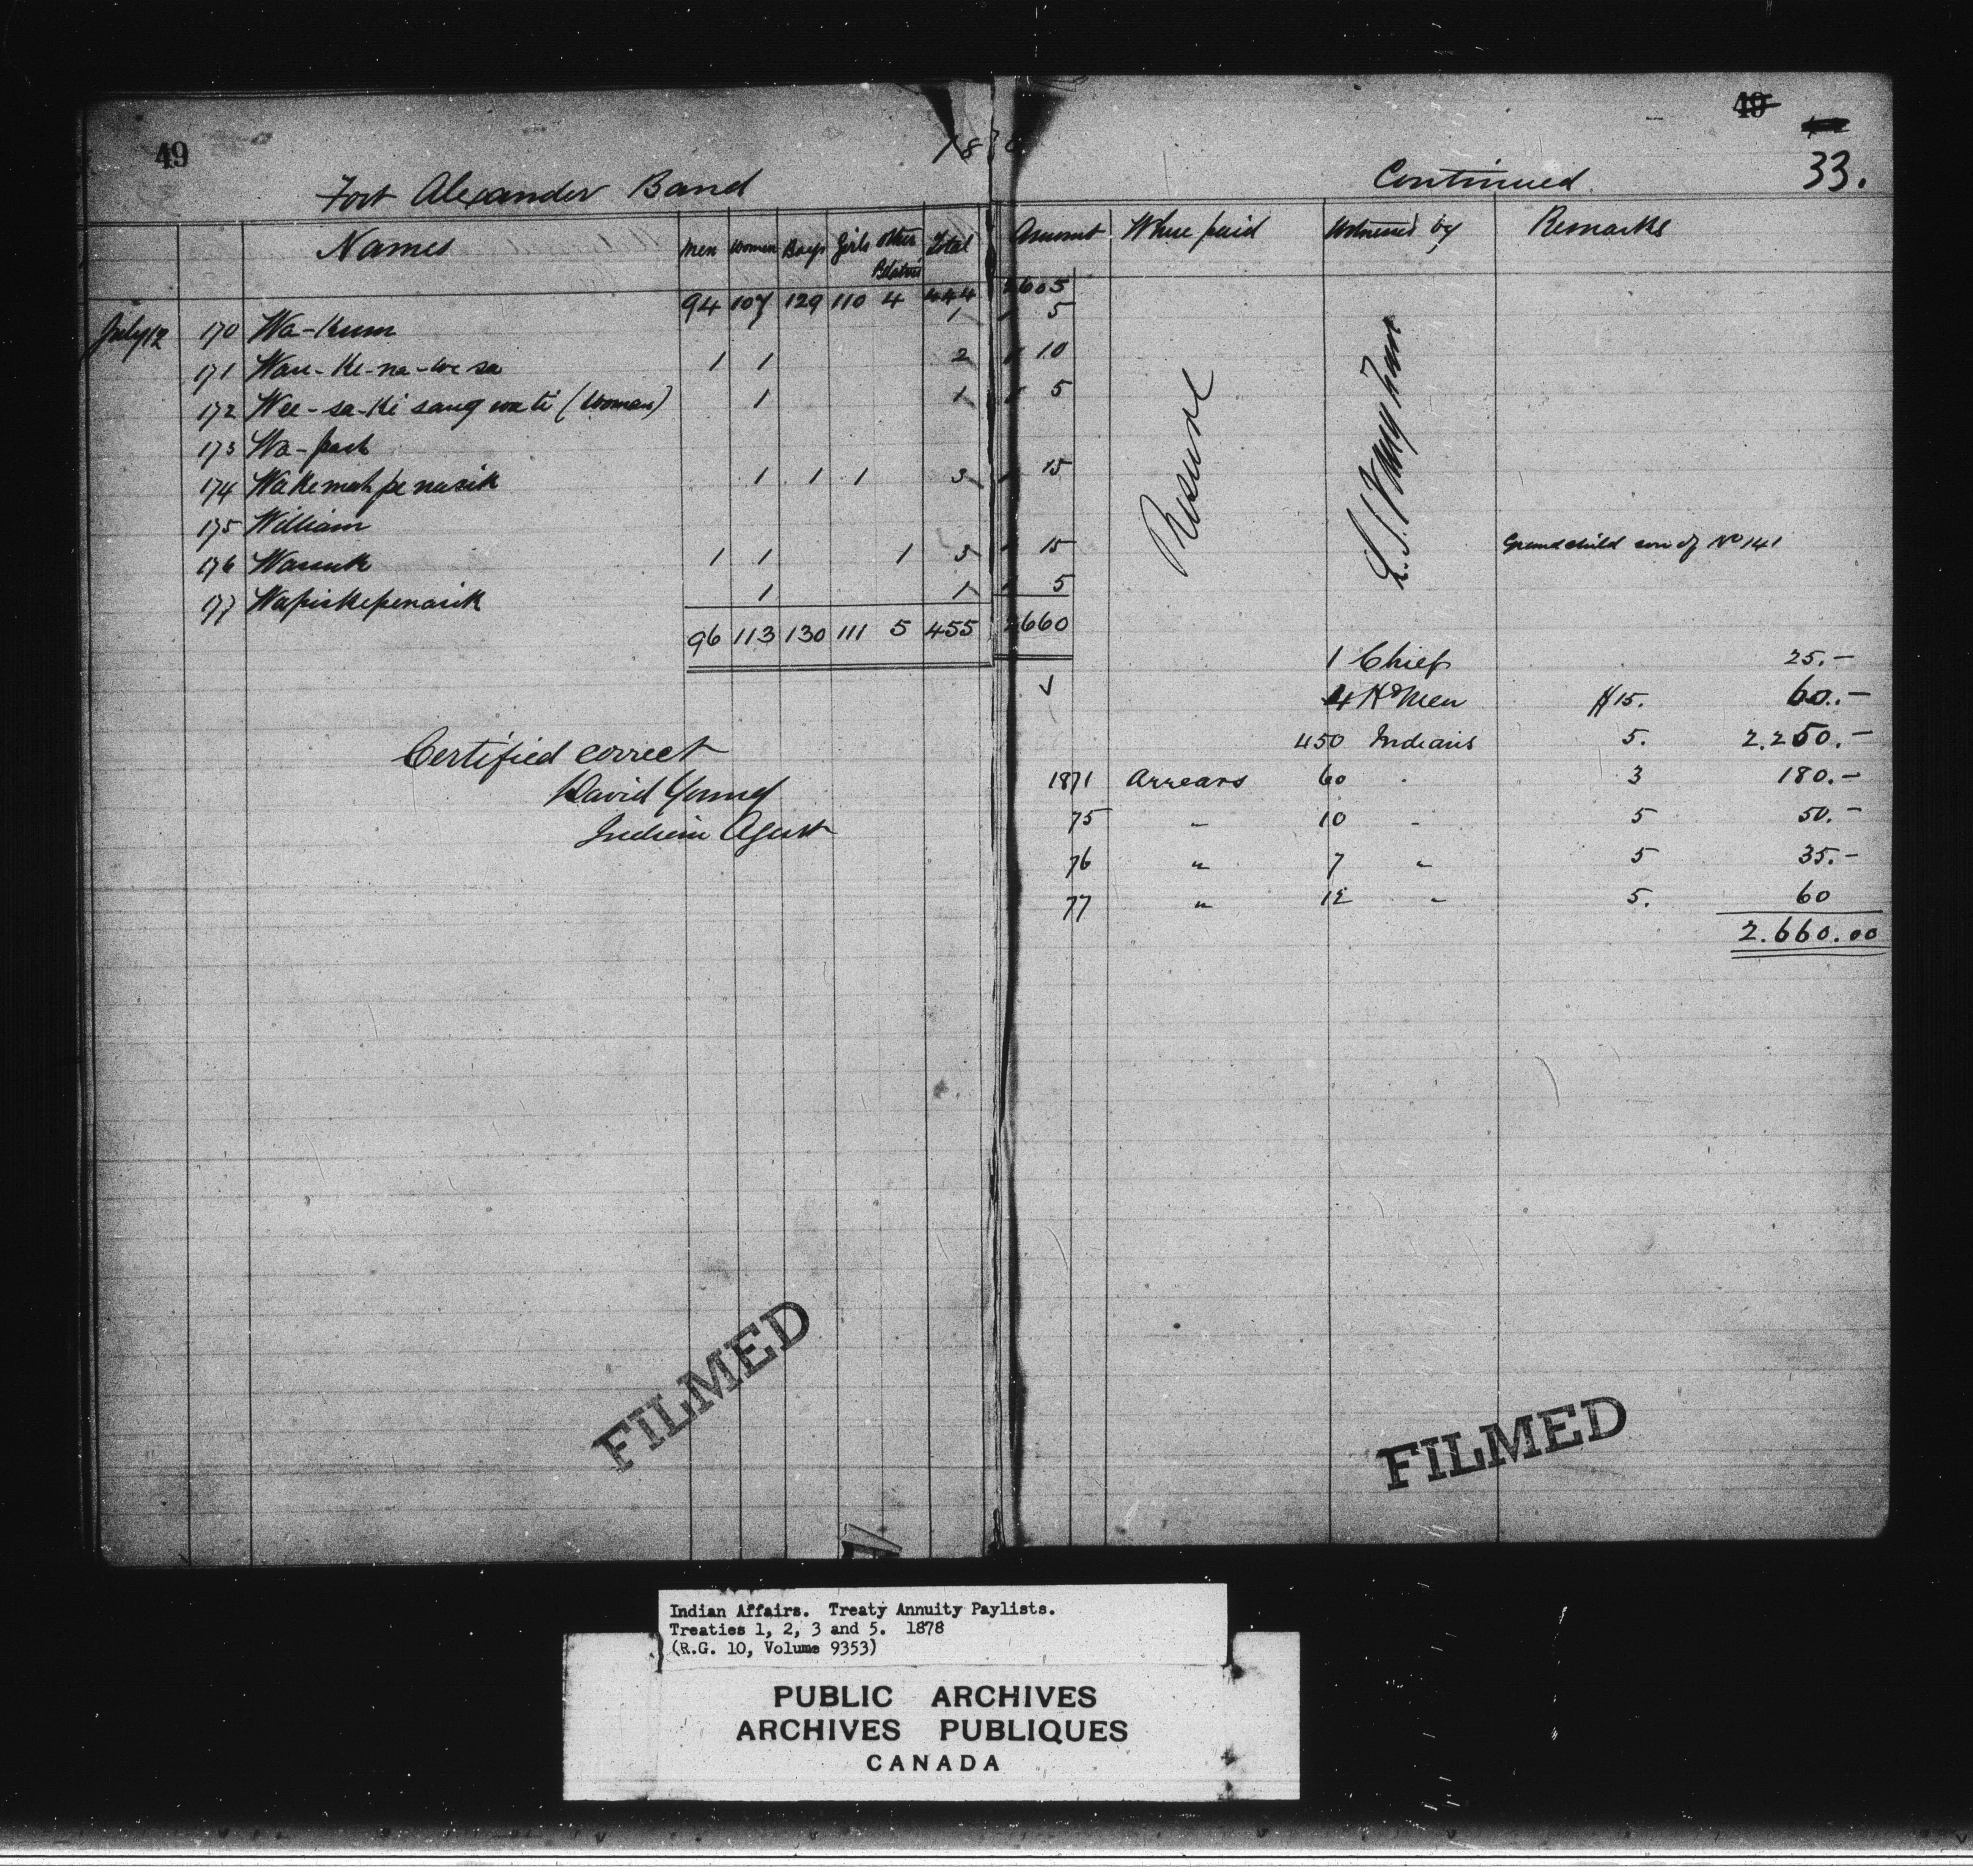 49
1878
49
33.
Fort Alexander Band
Continued
Names Men Women Boys Girls Other Relatives Total Amount Where paid Witnessed by Remarks
94 107 129 110 4 444 2605
July 12 170 Wa-kum 1 5
171 Wau-ke-na-we sa 1 1 2 10
172 Wee-sa-ki sang wa ti (Woman) 1 1 5
173 Wa-
174 Wakemah pe nasik 1 1 1 3 15
175 William
176 Wasuk 1 1 1 3 15 Grandchild son of No 141
177 Wapiskepenasik 1 1 5
96 113 130 111 5 455 2660
Reserve
L. S. Vaughan
1 Chief 25.-
4 Hd Men $15. 60.-
450 Indians 5. 2.250.-
1871 Arrears 60 " 3 180.-
75 " 10 " 5 50.-
76 " 7 " 5 35.-
77 " 12 " 5. 60
2.660.00
Certified correct
David Young
Indian Agent
FILMED
FILMED
Indian Affairs. Treaty Annuity Paylists.
Treaties 1, 2, 3 and 5. 1878
(R.G. 10, Volume 9353)
PUBLIC ARCHIVES
ARCHIVES PUBLIQUES
CANADA